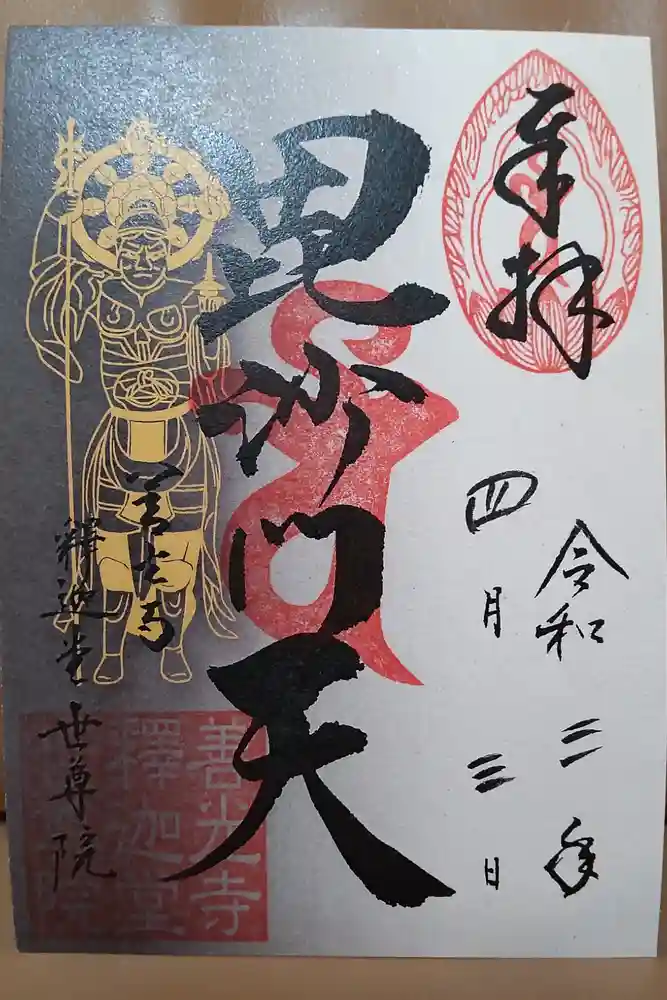 奉拝
令和三年
四月三日
毘沙門天
善光寺
釋迦堂世尊院
善光寺
釋迦堂